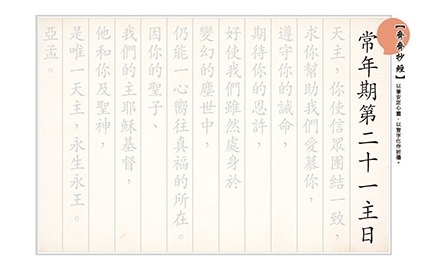 【齊齊抄經】
以筆安定心靈，以習字化作祈禱。
常年期第二十一主日
天主，你使信眾團結一致，
求你幫助我們愛慕你，
遵守你的誡命，
期待你的恩許，
好使我們雖然處身於
變幻的塵世中，
仍能一心嚮往真福的所在。
因你的聖子、
我們的主耶穌基督，
他和你及聖神，
是唯一天主，永生永王。
亞孟。